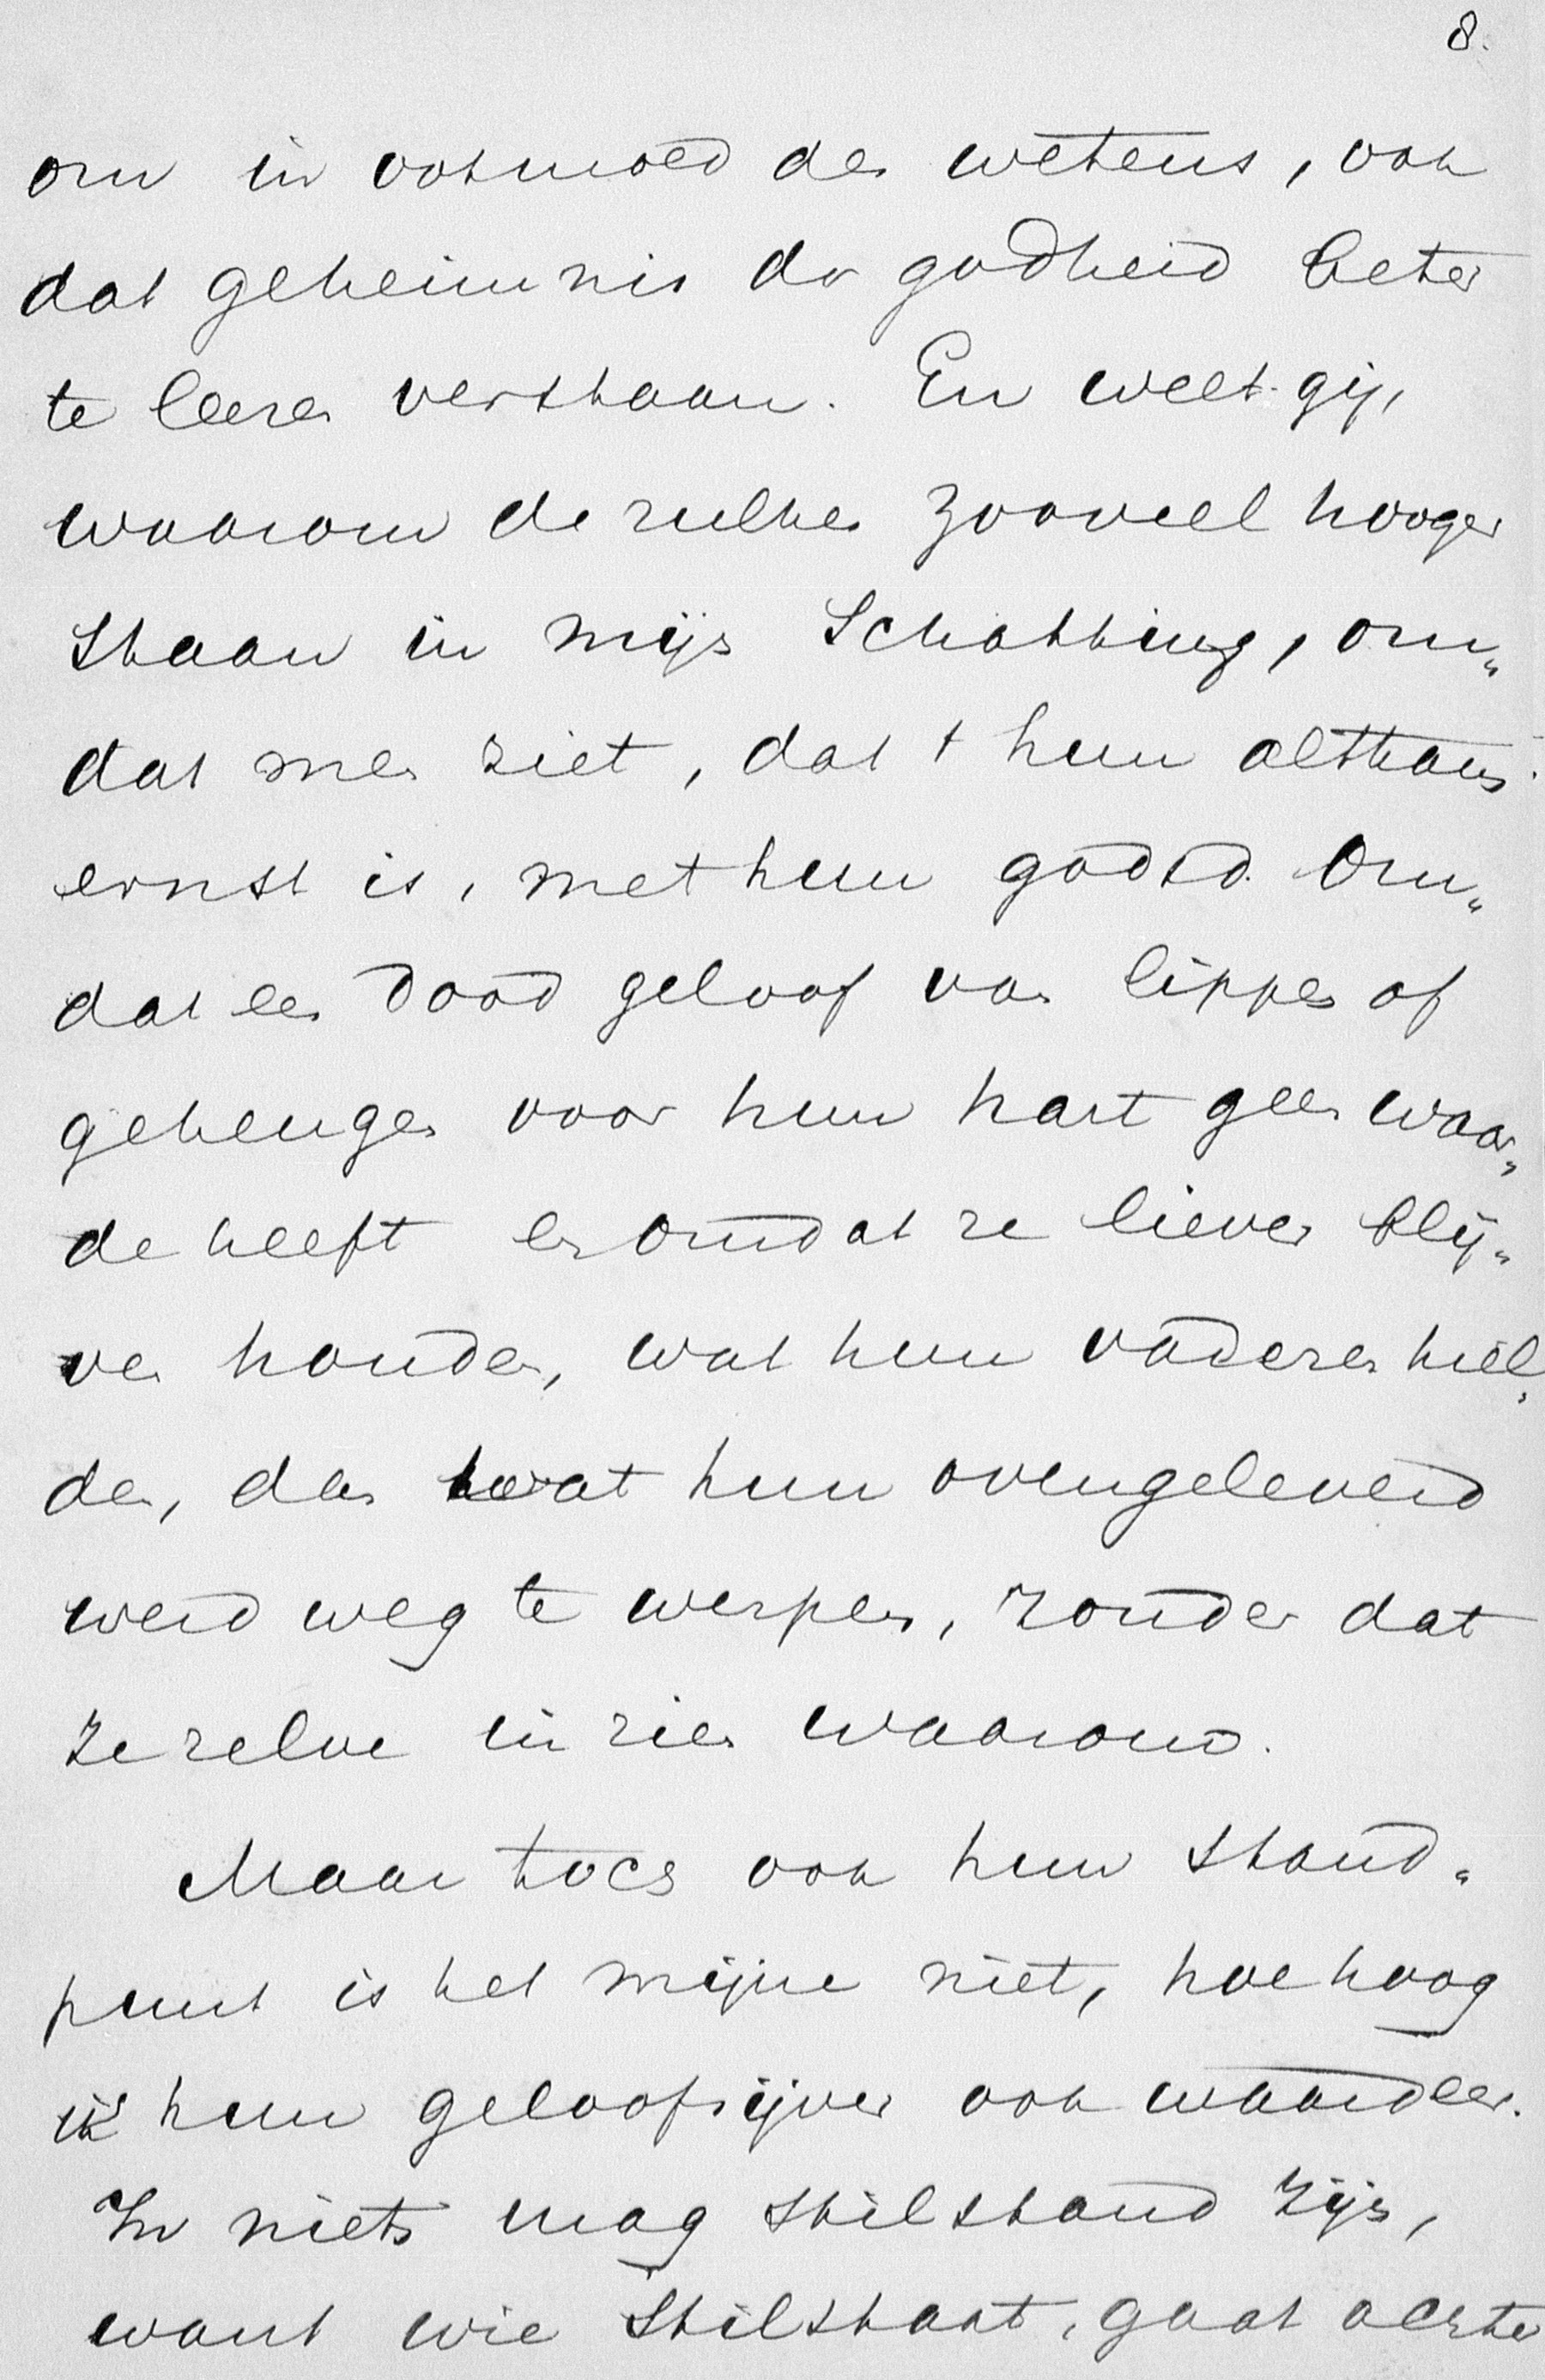 8.
om in ootmoed des wetens, ook
dat geheimnis der godheid beter
te leeren verstaan. En weet gij,
waarom de zulken zooveel hooger
staan in mijn schatting, om„
dat men ziet, dat 't hun althans
ernst is, met hun godsd. Om„
dat een dood geloof van lippen of
geheugen voor hun hart geen waar„
de heeft en omdat ze liever blij„
ven houden, wat hun vaderen hiel„
den, dan wat hun overgeleverd
werd weg te werpen, zonder dat
ze zelve inzien waarom.
Maar toch ook hun stand„
punt is het mijne niet, hoe hoog
ik hun geloofsijver ook waardeer.
In niets mag stilstand zijn,
want wie stilstaat, gaat achter